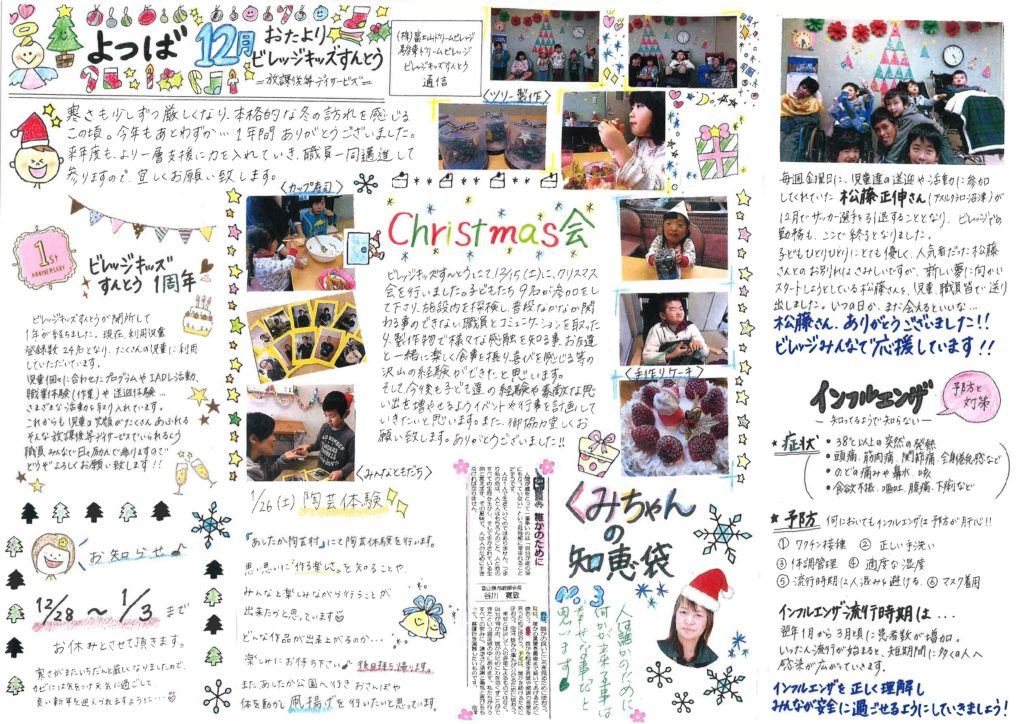 よつば
12月
おたより
ビレッジキッズすんとう
=放課後等デイサービス=
(株)富士山ドリームビレッジ
駿東ドリームビレッジ
ビレッジキッズすんとう
通信
寒さも少しずつ厳しくなり、本格的な冬の訪れを感じる
この頃。今年もあとわずか… 1年間ありがとうございました。
来年度も、より一層支援に力を入れていき、職員一同邁進して
参りますので、宜しくお願い致します。
<ツリー製作>
<カップ寿司>
1st
ANNIVERSARY
ビレッジキッズ
すんとう 1周年
ビレッジキッズすんとうが開所して
1年が経ちました。現在、利用児童
登録数 29名となり、たくさんの児童に利用
していただいています。
児童個々に合わせたプログラムや IADL活動、
職業体験(作業)や 送迎体験…
さまざまな活動を取り入れています。
これからも児童の笑顔がたくさんあふれる
そんな放課後等デイサービスでいられるよう
職員みんな日々励んで参りますので
どうぞよろしくお願い致します!!
Christmas会
ビレッジキッズすんとうにて、12/15(土)に、クリスマス
会を行いました。子どもたち9名が参加をし
て下さり、施設内を探検し、普段なかなか関
わる事のできない職員とコミュニケーションを取った
り、製作物で様々な感触を知る事、お友達
と一緒に楽しく食事を摂り喜びを感じる等の
沢山の経験ができたと思います。
そして今後も子ども達の経験や素敵な思
い出を増やせるようイベントや行事を計画して
いきたいと思います。また、御協力宜しくお
願い致します。ありがとうございました!!
<手作りケーキ>
<みんなともだち>
毎週金曜日に、児童達の送迎や活動に参加
してくれていた 松藤正伸さん(アスルクラロ沼津)が
12月でサッカー選手を引退することとなり、ビレッジでの
勤務も、ここで終了となりました。
子どもひとりひとりにとても優しく、人気者だった松藤
さんとのお別れはさみしいですが、新しい夢に向かい
スタートしようとしている松藤さんを、児童、職員皆で送り
出しました。いつの日か、また会えるといいな…
松藤さん、ありがとうございました!!
ビレッジみんなで応援しています!!
インフルエンザ
予防と
対策
— 知ってるようで知らない —
★ 症状
・38℃以上の突然の発熱
・頭痛、筋肉痛、関節痛、全身倦怠感など
・のどの痛みや鼻水、咳
・食欲不振、嘔吐、腹痛、下痢など
★ 予防 何においてもインフルエンザは予防が肝心!!
① ワクチン接種 ② 正しい手洗い
③ 体調管理 ④ 適度な湿度
⑤ 流行時期は人混みを避ける、⑥ マスク着用
インフルエンザ流行時期は…
翌年1月から3月頃に患者数が増加。
いったん流行が始まると、短期間に多くの人へ
感染が広がっていきます。
インフルエンザを正しく理解し
みんなが安全に過ごせるようにしていきましょう!
お知らせ♪
12/28 〜 1/3 まで
お休みとさせて頂きます。
寒さがまたいちだんと厳しくなりましたので、
良い新年を迎えられますように…
1/26(土) 陶芸体験
『あしたか陶芸村』にて陶芸体験を行います。
思い思いに"作る楽しさ"を知ることや、
みんなと楽しみながら行うことが
出来たかと思っています
どんな作品が出来上がるのか…
楽しみにお待ち下さい♪ 後日持ち帰ります。
また、あしたか公園へ行き おさんぽや
体を動かし 凧揚げを行いたいと思っています。
誰かのために
富山県市教師会長
谷川 寛敬
くみちゃん
の
知恵袋
No.3
人は誰かのために
何かが出来る事は
幸せな事だと
思います!